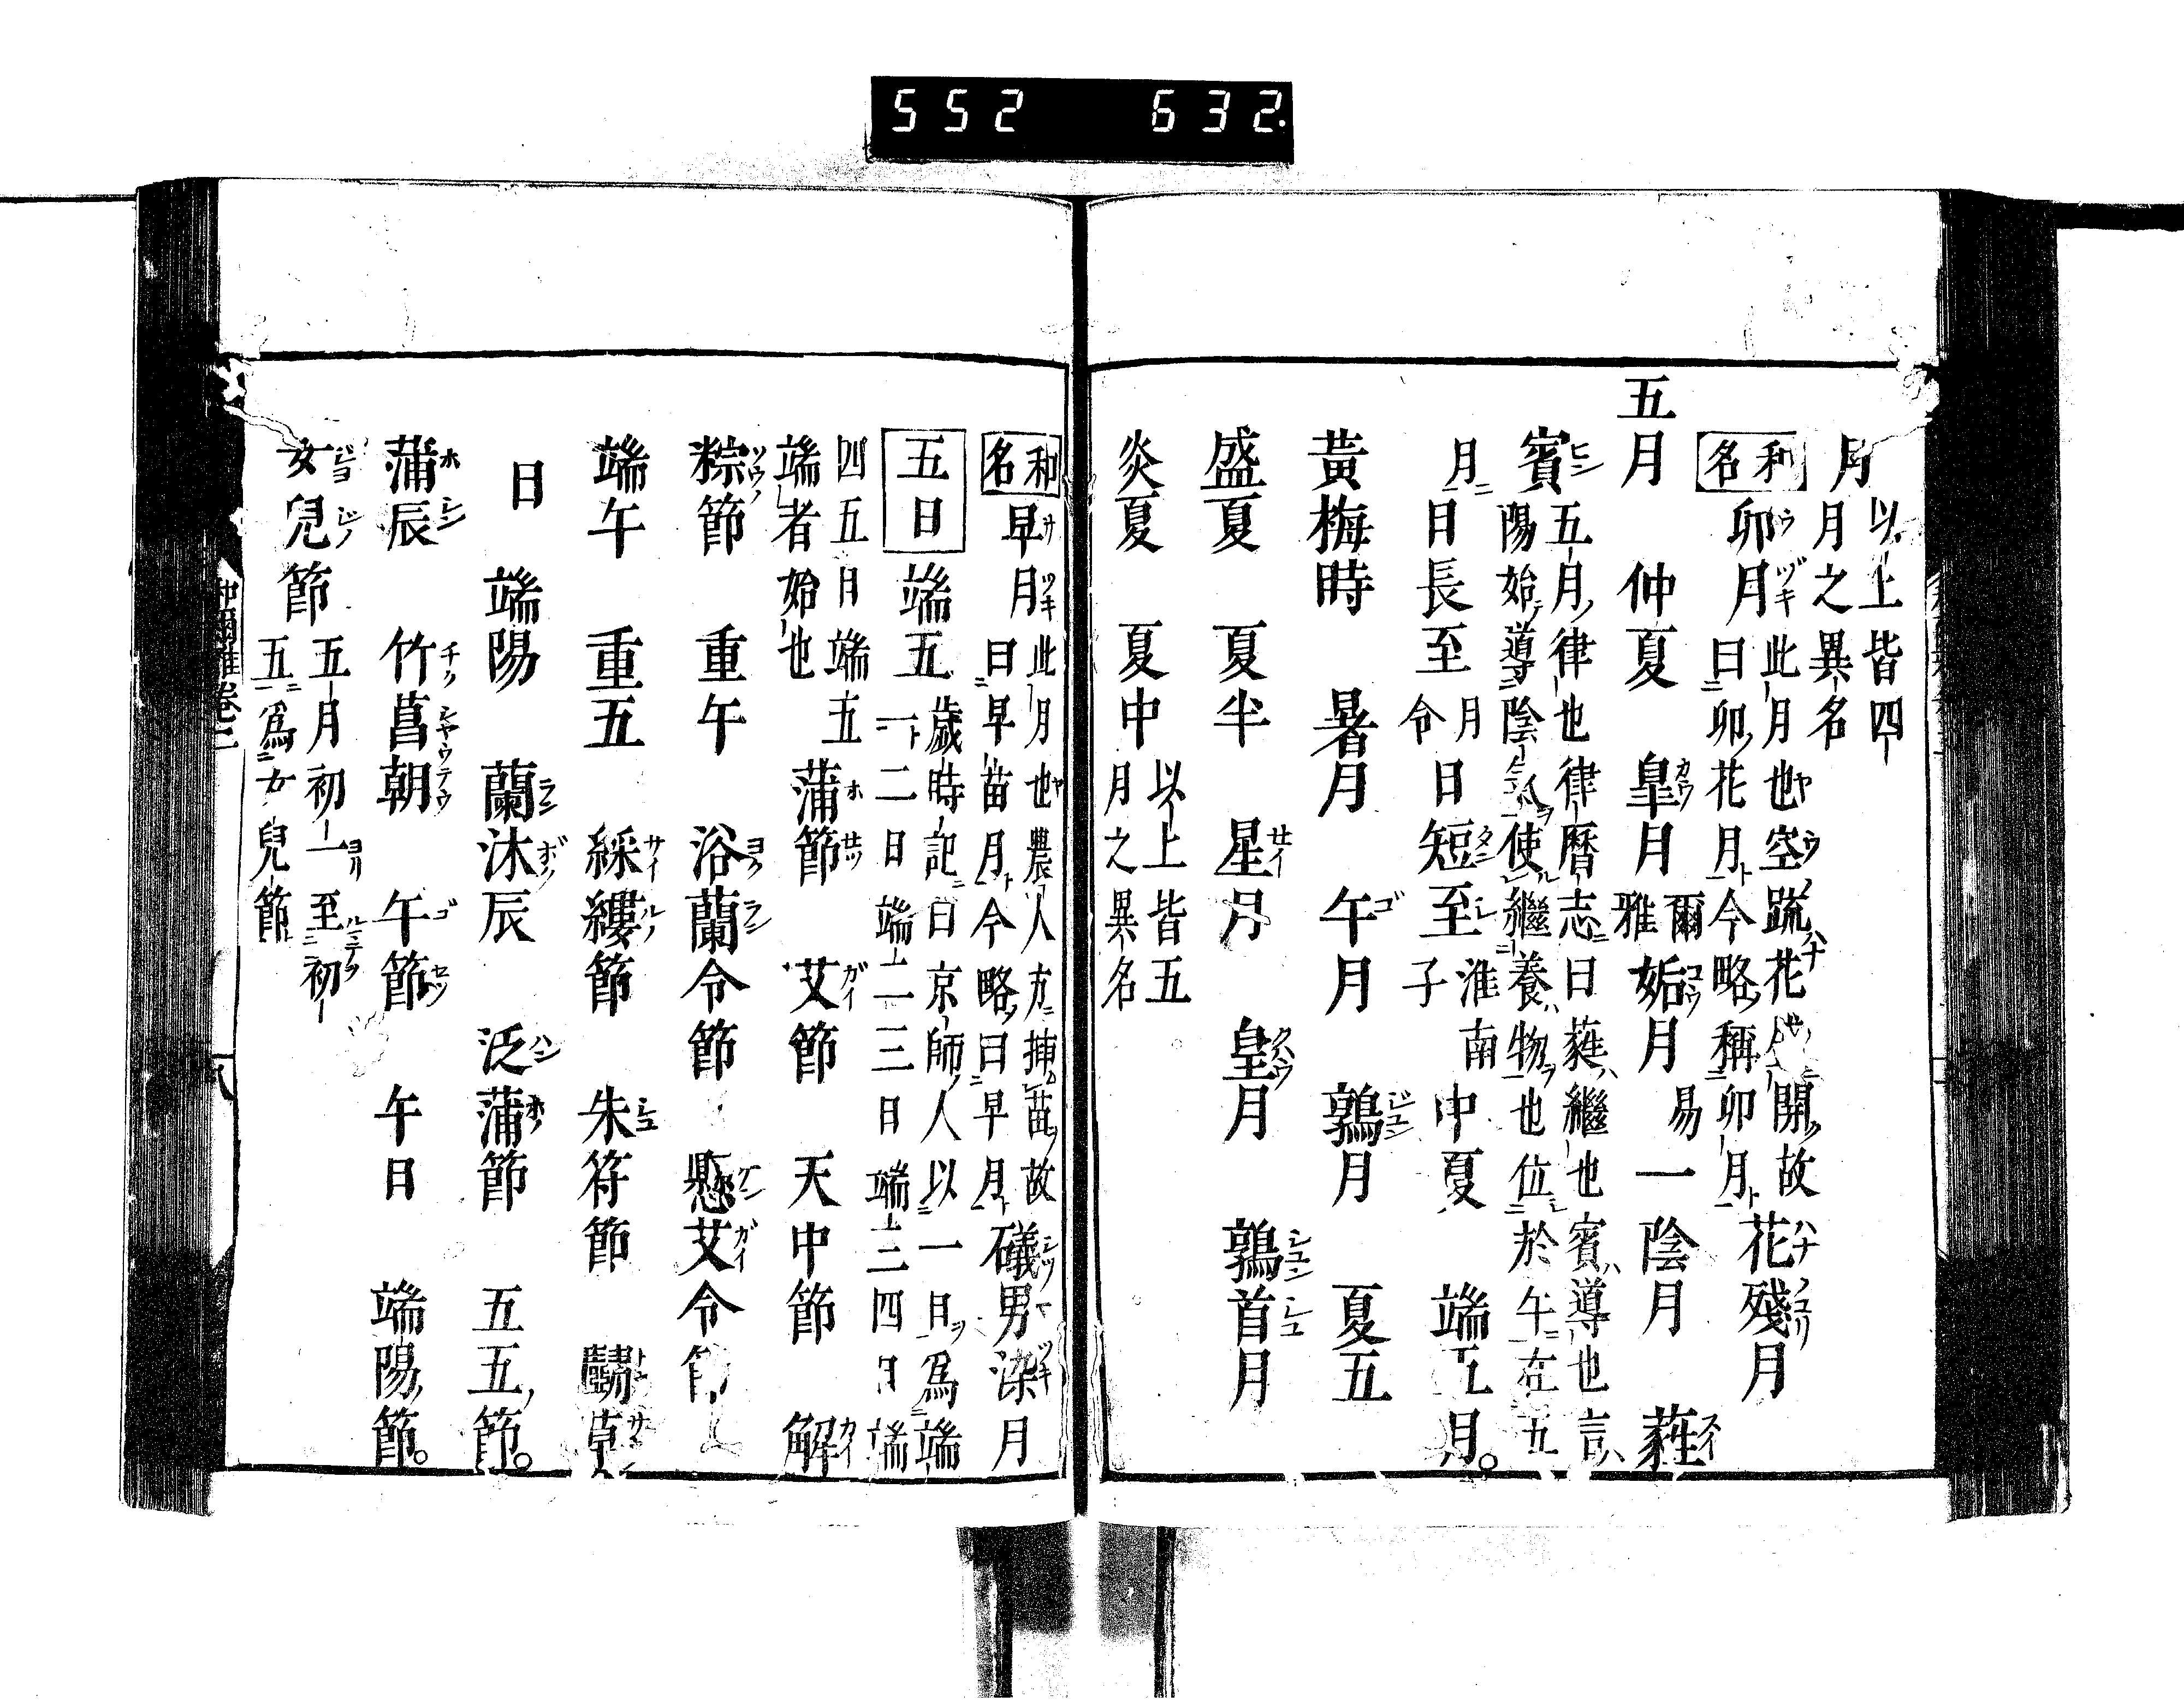 552 632.
月 以上皆四
月之異名
和名 卯月 此月也空蹠花開故
曰卯花月今略稱卯月 花殘月
五月 仲夏 皐月 爾雅 姤月 易 一陰月 蕤
賓 五月律也律曆志曰蕤繼也賓導也言
陽始導陰氣使繼養物也位於午在五
月 日長至 月令 日短至 淮南子 中夏 端五月
黃梅時 暑月 午月 鶉月 夏五
盛夏 夏半 星月 皇月 鶉首月
炎夏 夏中 以上皆五
月之異名
和名 早月 此月也農人挿苗故
曰早苗月今略曰早月 礒男染月
五日 端五 歲時記曰京師人以一日爲端
一二日端二三日端三四日端
四五月端五
端者始也 蒲節 艾節 天中節 解
粽節 重午 浴蘭令節 懸艾令節
端午 重五 綵縷節 朱符節 鬬草
日 端陽 蘭沐辰 泛蒲節 五五節
蒲辰 竹菖朝 午節 午日 端陽節
女兒節 五月初一至初
五爲女兒節
卷三
八